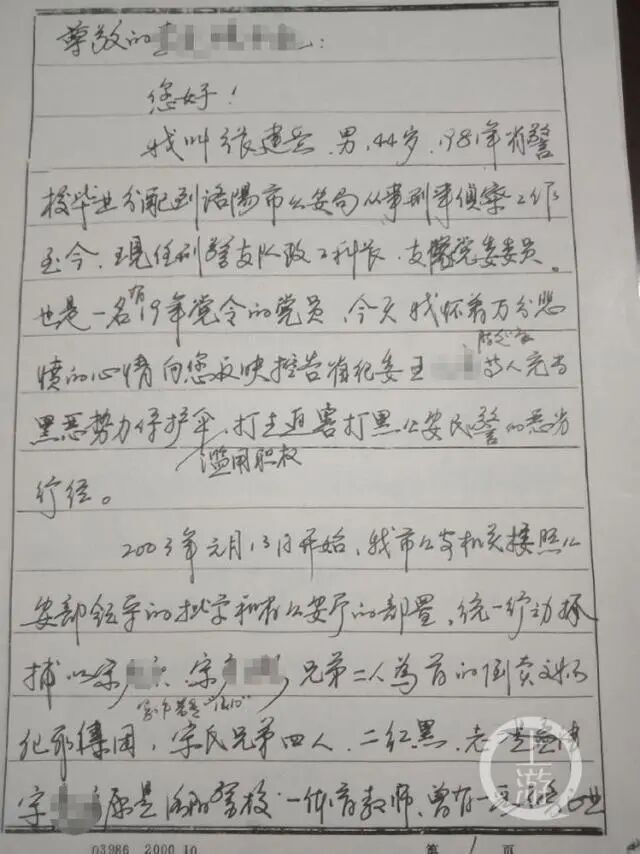 尊敬的
您好！
我叫张建营，男，44岁，1981年省警
校毕业分配到洛陽市公安局从事刑事侦察工作
至今，现任刑警支队政工科长，支队党委委员。
也是一名有19年党令的党员，今天我怀着万分悲
愤的心情向您反映控告省纪委王 等人充当
黑恶势力保护伞，滥用职权，打击迫害打黑公安民警的恶劣
行径。
2003年元月13日开始，我市公安机关按照公
安部领导的批字和省公安厅的部署，统一行动抓
捕以宋 、宋 兄弟二人为首的倒卖文物
犯罪集团，宋氏兄弟四人，二红黑，老
宋 原是洛阳警校一体育教师，曾有一
上游
03986 2000.10 第 1